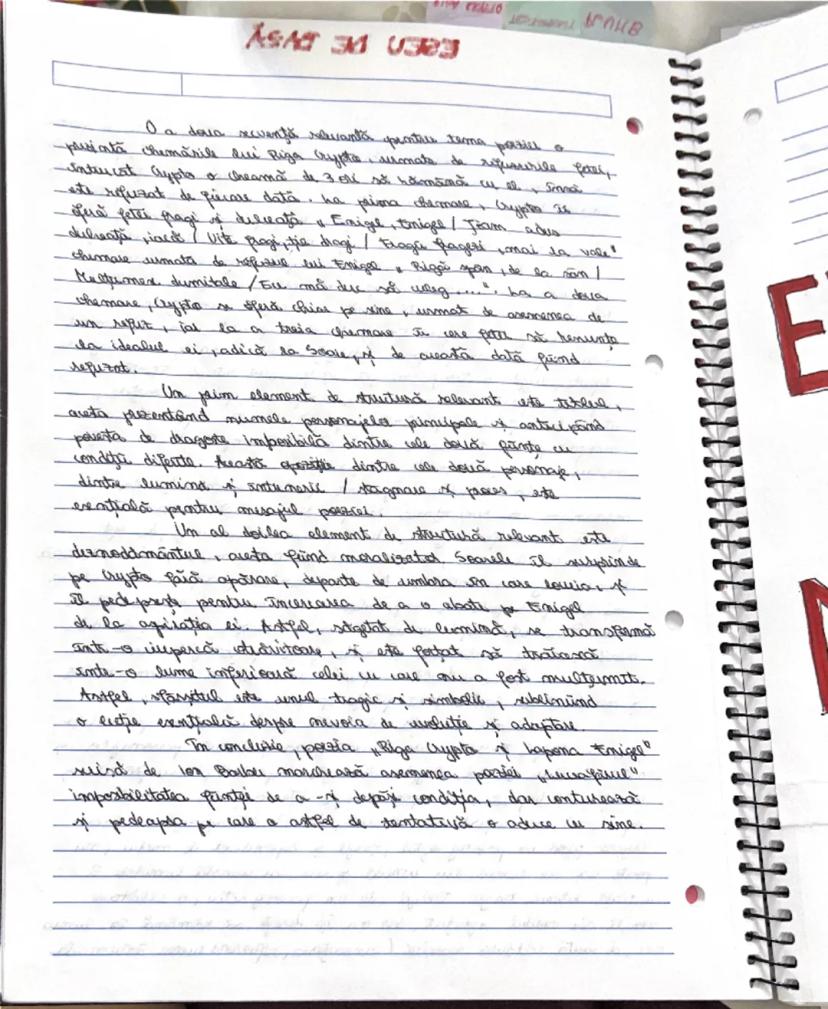 ESEU DE PVSV
O a doua secvență relevantă pentru tema poeziei o
prezintă chemările lui Riga Crypto, urmate de refuzurile fetei,
întrucât Crypto o cheamă de 3 ori să rămână cu el, însă
este refuzat de fiecare dată. La prima chemare, Crypto îi
oferă fetei fragi și dulceață „Enigel, Enigel / Ți-am adus
dulceață, iacă / Uite fragi, ție dragi / Fragii fragezi, mai la vale"
chemare urmată de refuzul lui Enigel „Rigă spân, de la sân /
Mulțumesc dumitale / Eu mă duc să culeg....". La a doua
chemare, Crypto se oferă chiar pe sine, urmat de asemenea de
un refuz, iar la a treia chemare îi cere fetei să renunțe
la idealul ei, adică la Soare, și de această dată fiind
refuzat.
Un prim element de structură relevant este titlul,
acesta prezentând numele personajelor principale și anticipând
povestea de dragoste imposibilă dintre cele două ființe cu
condiții diferite. Această opoziție dintre cele două personaje,
dintre lumină și întuneric / stagnare și proces, este
esențială pentru mesajul poeziei.
Un al doilea element de structură relevant este
deznodământul, acesta fiind moralizator. Soarele îl surprinde
pe Crypto fără apărare, departe de umbra în care locuia, și
îl pedepsește pentru încercarea de a o abate pe Enigel
de la aspirația ei. Astfel, săgetat de lumină, se transformă
într-o ciupercă otrăvitoare, și este forțat să trăiască
într-o lume inferioară celei cu care nu a fost mulțumit.
Astfel, sfârșitul este unul tragic și simbolic, subliniind
o lecție esențială despre nevoia de evoluție și adaptare.
În concluzie, poezia „Riga Crypto și lapona Enigel"
scrisă de Ion Barbu marchează asemenea poeziei „Luceafărul"
imposibilitatea ființei de a-și depăși condiția, dar conturează
și pedeapsa pe care a astfel de tentativă o aduce cu sine.
E